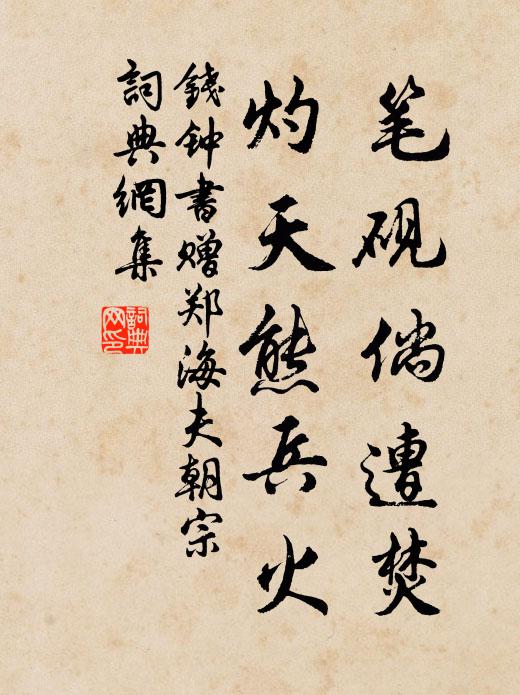 笔砚倘遭焚
灼天熊兵火
錢钟書赠郑海夫朝宗
詞典網集
詞典
网印